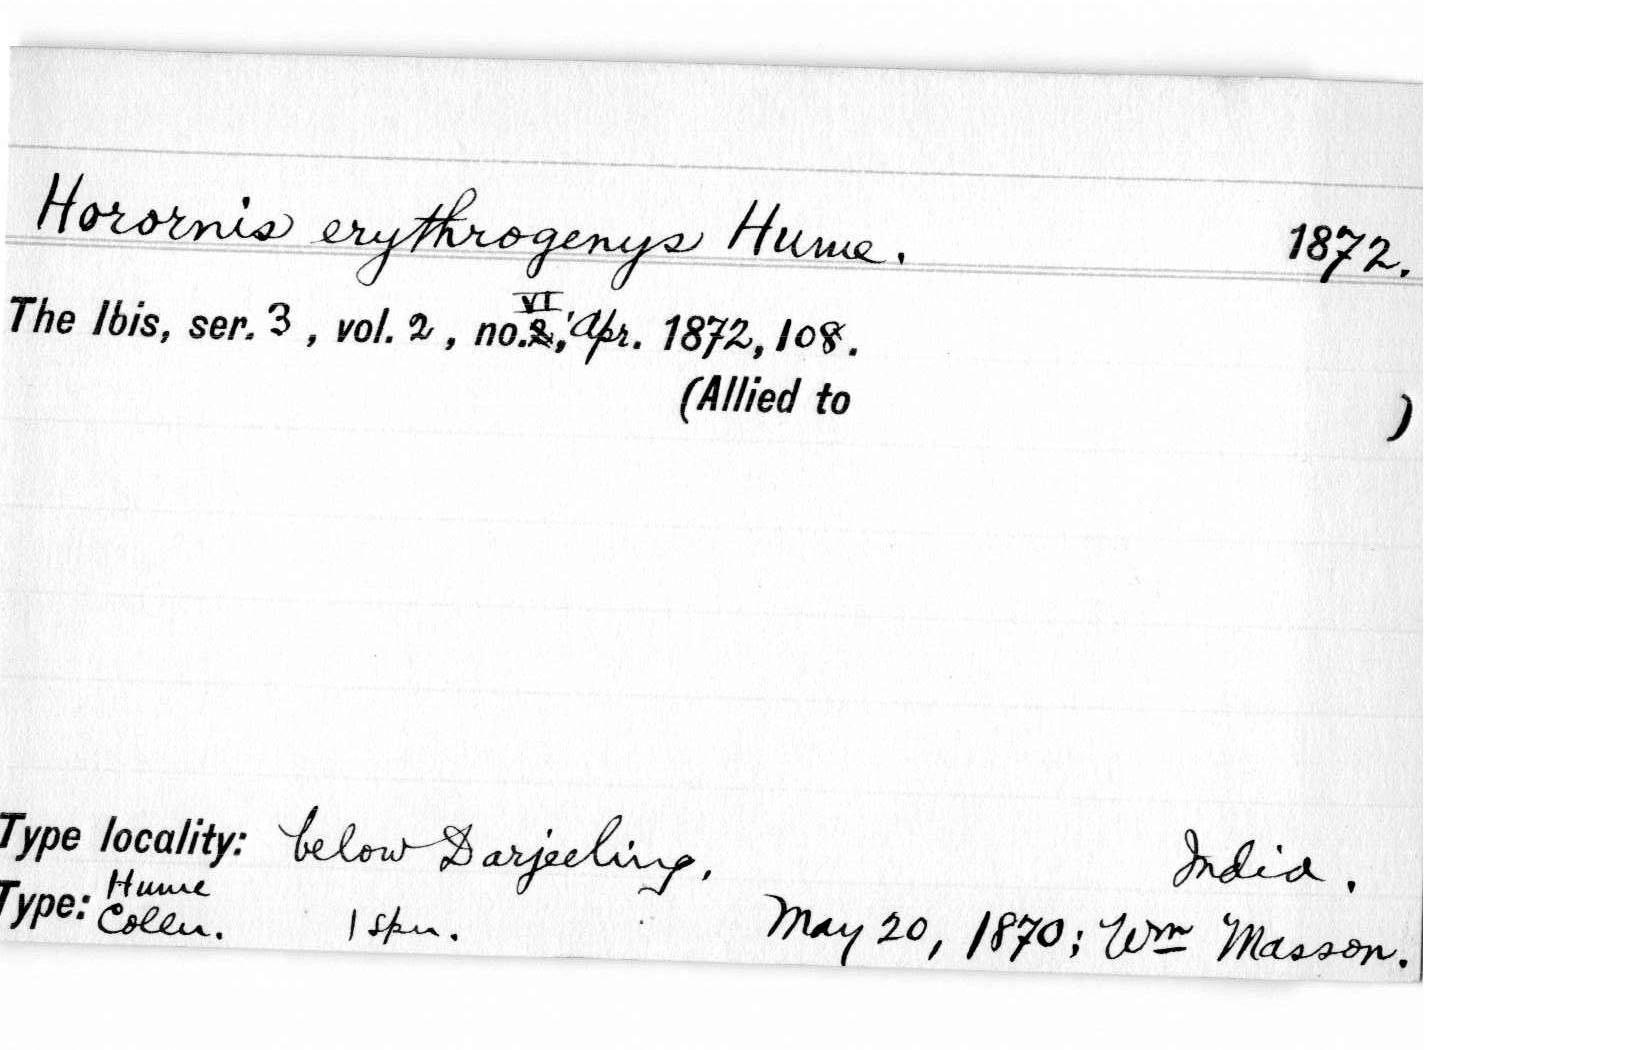 Horornis erythrogenys Hume. 1872.
VI
The Ibis, ser. 3, vol. 2, no. 2, 'Apr. 1872, 108.
(Allied to )
Type locality: below Darjeeling, India.
Type: Hume Colln. 1 spn. May 20, 1870; Wm Masson.